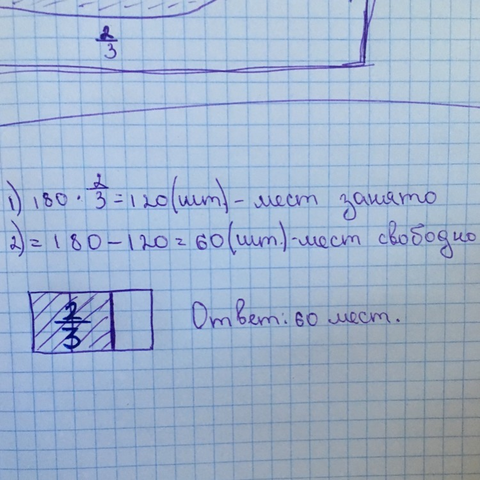 2/3
1) 180 · 2/3 = 120 (шт) - мест занято
2) = 180 - 120 = 60 (шт.) - мест свободно
2/3
Ответ: 60 мест.